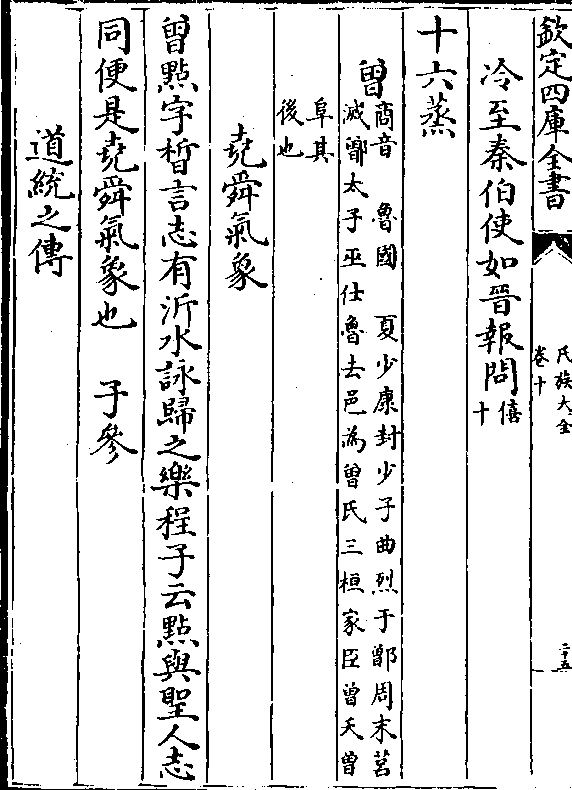 欽定四庫全書
氏族大全
卷十
二十五
冷至秦伯使如晉報問僖
十
十六蒸
曾商音 魯國 夏少康封少子曲烈于鄫周末莒
滅鄫太子巫仕魯去邑為曾氏三桓家臣曾夭曾
阜其
後也
堯舜氣象
曾點字晳言志有沂水詠歸之樂程子云點與聖人志
同便是堯舜氣象也 子參
道統之傳